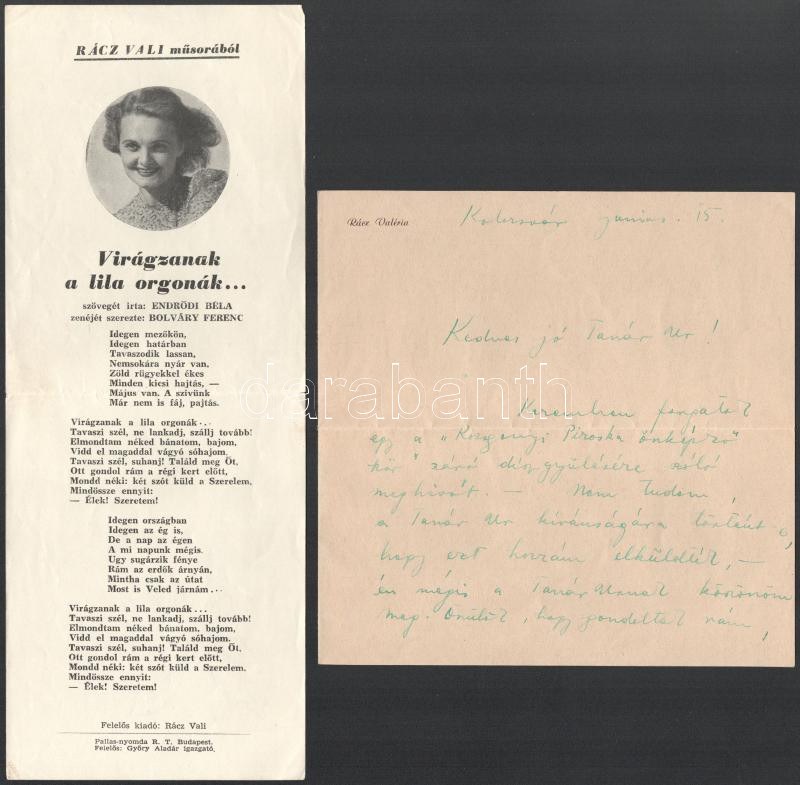 RÁCZ VALI műsorából
Virágzanak
a lila orgonák...
szövegét irta: ENDRŐDI BÉLA
zenéjét szerezte: BOLVÁRY FERENC
Idegen mezőkön,
Idegen határban
Tavaszodik lassan,
Nemsokára nyár van,
Zöld rügyekkel ékes
Minden kicsi hajtás, —
Május van. A szivünk
Már nem is fáj, pajtás.
Virágzanak a lila orgonák...
Tavaszi szél, ne lankadj, szállj tovább!
Elmondtam néked bánatom, bajom,
Vidd el magaddal vágyó sóhajom.
Tavaszi szél, suhanj! Találd meg Őt,
Ott gondol rám a régi kert előtt,
Mondd néki: két szót küld a Szerelem.
Mindössze ennyit:
— Élek! Szeretem!
Idegen országban
Idegen az ég is,
De a nap az égen
A mi napunk mégis.
Ugy sugárzik fénye
Rám az erdők árnyán,
Mintha csak az útat
Most is Veled járnám...
Virágzanak a lila orgonák...
Tavaszi szél, ne lankadj, szállj tovább!
Elmondtam néked bánatom, bajom,
Vidd el magaddal vágyó sóhajom.
Tavaszi szél, suhanj! Találd meg Őt,
Ott gondol rám a régi kert előtt,
Mondd néki: két szót küld a Szerelem.
Mindössze ennyit:
— Élek! Szeretem!
Felelős kiadó: Rácz Vali
Pallas-nyomda R. T. Budapest.
Felelős: Győry Aladár igazgató.
Rácz Valéria
Kolozsvár junius. 15.
Kedves jó Tanár Ur!
Kezemben forgatok
egy a „Rozgonyi Piroska önképző
kör" záró díszgyülésére szóló
meghívót. — Nem tudom,
a Tanár Ur kívánságára történt-e,
hogy ezt hozzám elküldték, —
én mégis a Tanár Urnak köszönöm
meg. Örülök, hogy gondoltak rám,
darabanth